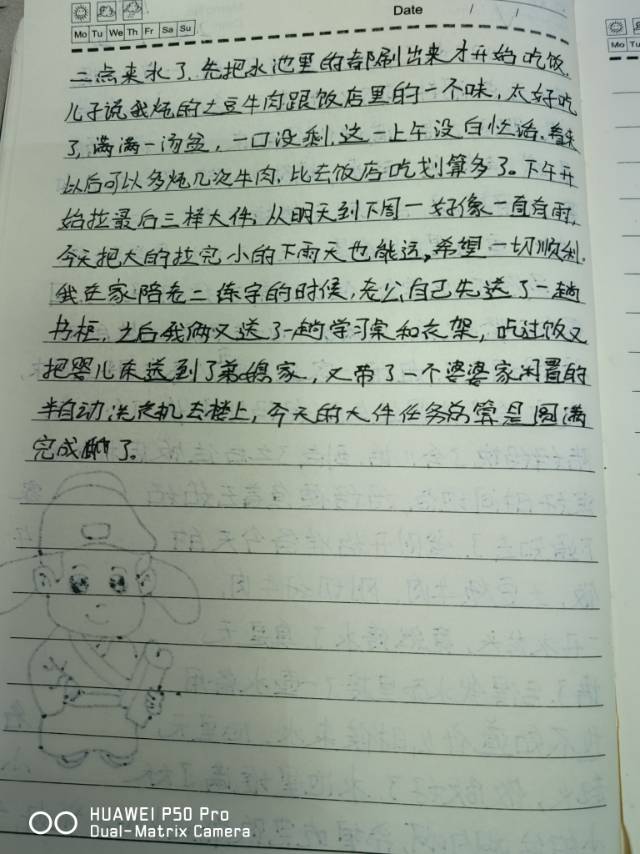 Date / /
Mo Tu We Th Fr Sa Su
Mo Tu
二点来水了,先把水池里的都刷出来才开始吃饭,
儿子说我炖的土豆牛肉跟饭店里的一个味,太好吃
了,满满一汤盆,一口没剩,这一上午没白忙活.看来
以后可以多炖几次牛肉,比去饭店吃划算多了。下午开
始拉最后三样大件,从明天到下周一好像一直有雨,
今天把大的拉完小的下雨天也能运,希望一切顺利.
我在家陪老二练字的时候,老公自己先送了一趟
书柜,之后我俩又送了一趟学习桌和衣架,吃过饭又
把婴儿床送到了弟媳家,又带了一个婆婆家闲置的
半自动洗衣机去楼上,今天的大件任务算是圆满
完成了。
HUAWEI P50 Pro
Dual-Matrix Camera